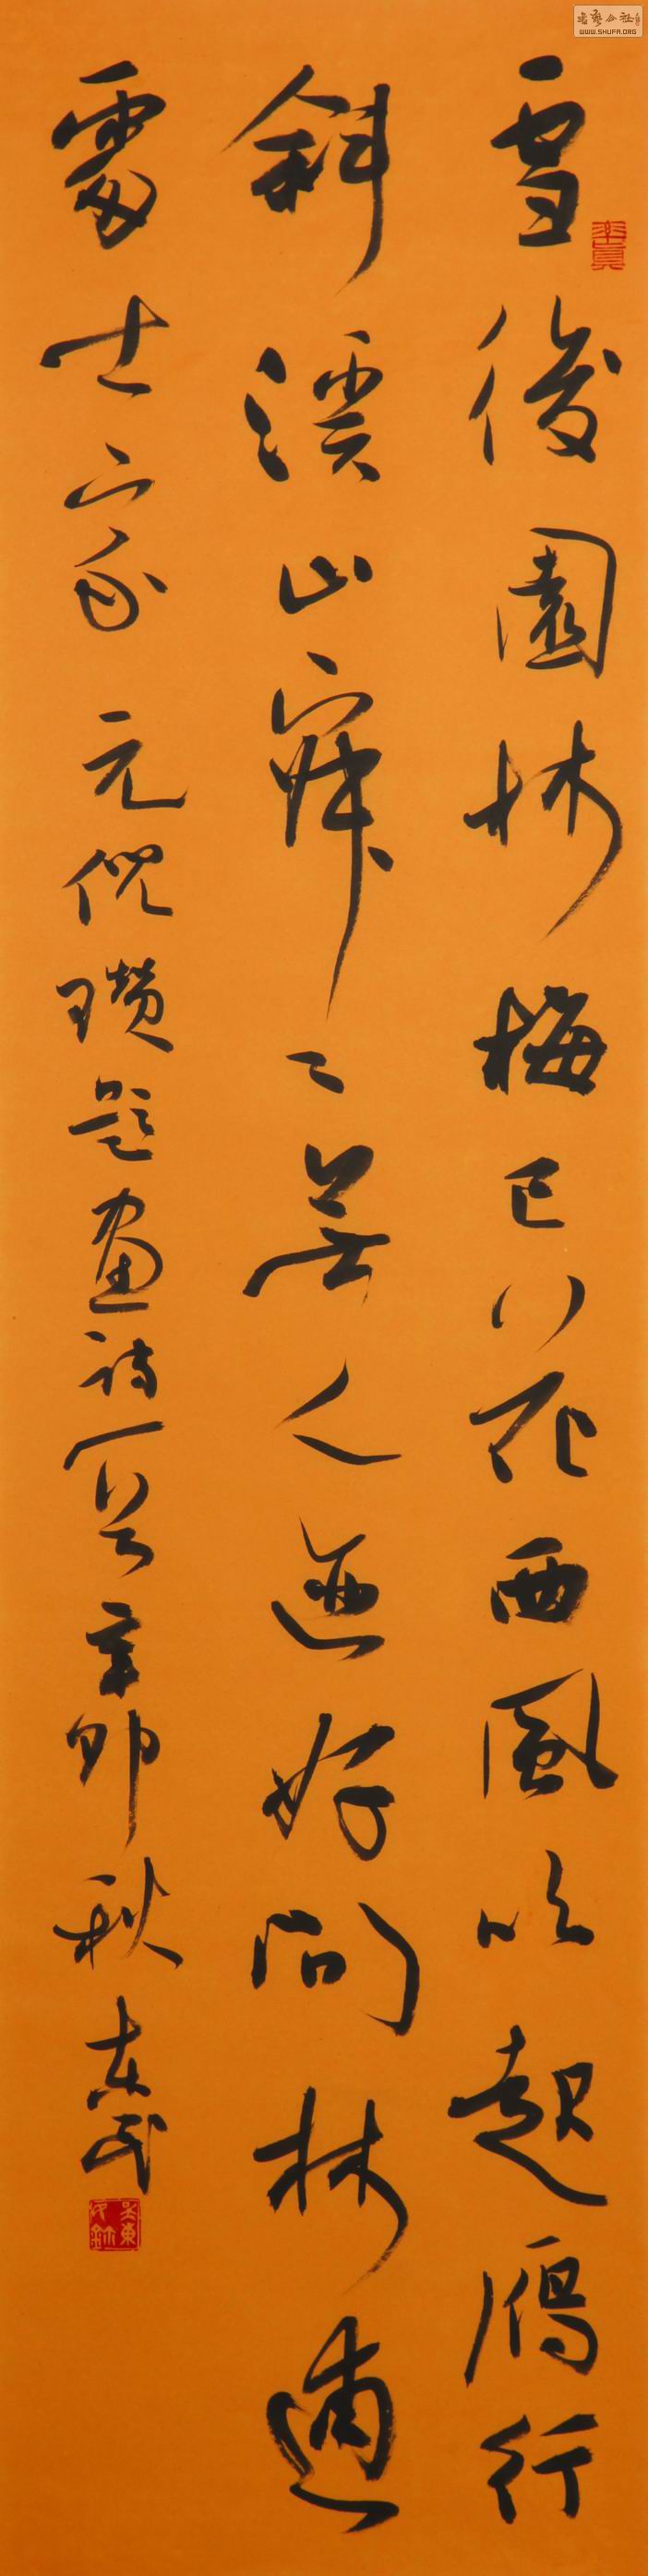 雪後園林梅已花西風吹起雁行
斜溪山寂〻無人迹好問林逋
處士家 元倪瓚題畫詩一首 辛卯秋 東民
书艺公社
WWW.SHUFA.ORG